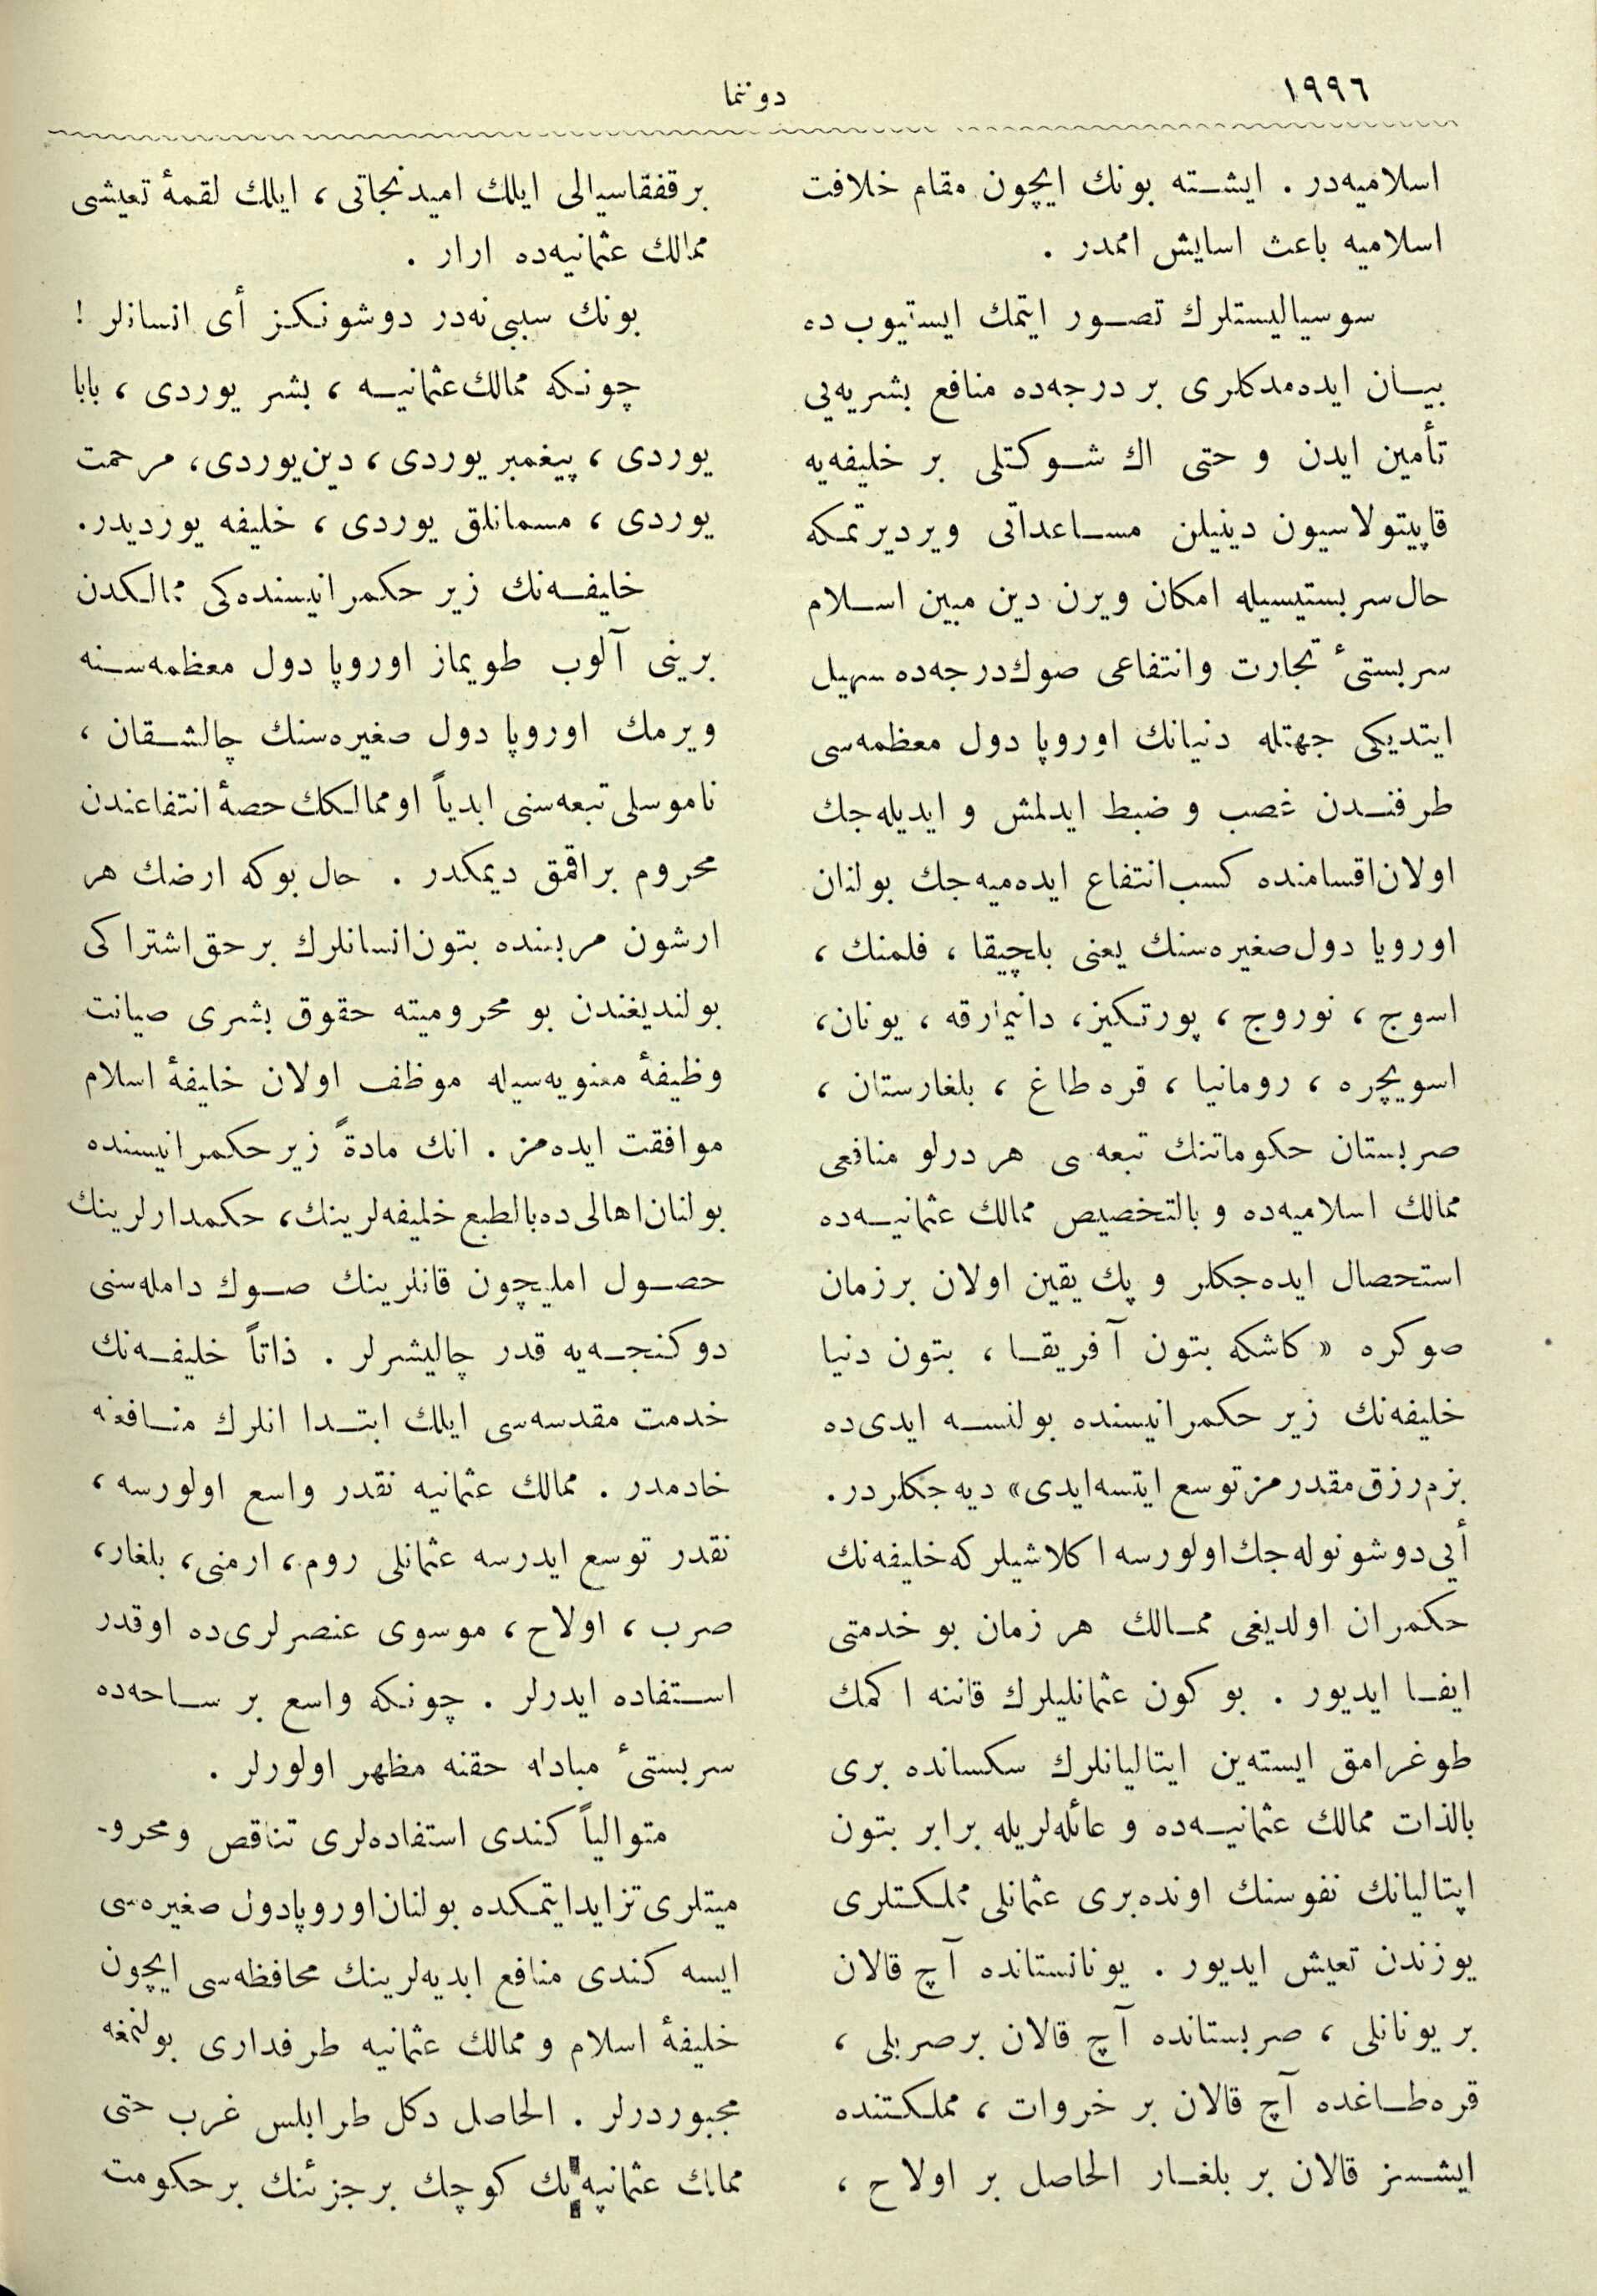 ١٩٩٦
دوننما
اسلامیه‌در . ایشته بونك ایچون مقام خلافت
اسلامیه باعث اسایش اممدر .
سوسیالیستلرك تصور ایتمك ایستیوب ده
بیان ایده‌مدکلری بر درجه‌ده منافع بشریه‌یی
تأمین ایدن و حتی اك شوکتلی بر خلیفه‌یه
قاپیتولاسیون دینیلن مساعداتی ویردیرتمکه
حال سربستیسیله امکان ویرن دین مبین اسلام
سربستیٔ تجارت وانتفاعی صوك درجه‌ده سهیل
ایتدیکی جهتله دنیانك اوروپا دول معظمه‌سی
طرفندن غصب و ضبط ایدلمش و ایدیله‌جك
اولان اقسامنده کسب انتفاع ایده‌میه‌جك بولنان
اوروپا دول صغیره‌سنك یعنی بلچیقا ، فلمنك ،
اسوج ، نوروج ، پورتکیز، دانیمارقه ، یونان،
اسویچره ، رومانیا ، قره‌طاغ ، بلغارستان ،
صربستان حکوماتنك تبعه‌سی هر درلو منافعی
ممالك اسلامیه‌ده و بالتخصیص ممالك عثمانیه‌ده
استحصال ایده‌جکلر و پك یقین اولان بر زمان
صوکره «کاشکه بتون آفریقا ، بتون دنیا
خلیفه‌نك زیر حکمرانیسنده بولنسه ایدی ده
بزم رزق مقدرمز توسع ایتسه ایدی» دیه‌جکلردر.
أیی دوشونوله‌جك اولورسه اکلاشیلر که خلیفه‌نك
حکمران اولدیغی ممالك هر زمان بو خدمتی
ایفا ایدیور . بو کون عثمانلیلرك قاننه اکمك
طوغرامق ایسته‌ین ایتالیانلرك سکسانده بری
بالذات ممالك عثمانیه‌ده و عائله‌لریله برابر بتون
ایتالیانك نفوسنك اونده‌بری عثمانلی مملکتلری
یوزندن تعیش ایدیور . یونانستانده آچ قالان
بر یونانلی ، صربستانده آچ قالان بر صربلی ،
قره‌طاغده آچ قالان بر خروات ، مملکتنده
ایشسز قالان بر بلغار الحاصل بر اولاح ،
بر قفقاسیالی ایلك امید نجاتی ، ایلك لقمهٔ تعیشی
ممالك عثمانیه‌ده ارار .
بونك سببی نه‌در دوشونکز أی انسانلر !
چونکه ممالك عثمانیه ، بشر یوردی ، بابا
یوردی ، پیغمبر یوردی ، دین یوردی، مرحمت
یوردی ، مسمانلق یوردی ، خلیفه یوردیدر.
خلیفه‌نك زیر حکمرانیسنده‌کی ممالکدن
برینی آلوب طویماز اوروپا دول معظمه‌سنه
ویرمك اوروپا دول صغیره‌سنك چالشقان ،
ناموسلی تبعه‌سنی ابدیاً او ممالکك حصهٔ انتفاعندن
محروم براقمق دیمکدر . حال بوکه ارضك هر
ارشون مربعنده بتون انسانلرك بر حق اشتراکی
بولندیغندن بو محرومیته حقوق بشری صیانت
وظیفهٔ معنویه‌سیله موظف اولان خلیفهٔ اسلام
موافقت ایده‌مز . انك مادةً زیر حکمرانیسنده
بولنان اهالی ده بالطبع خلیفه‌لرینك، حکمدارلرینك
حصول املیچون قانلرینك صوك دامله‌سنی
دوکنجه‌یه قدر چالیشرلر . ذاتاً خلیفه‌نك
خدمت مقدسه‌سی ایلك ابتدا انلرك منافعنه
خادمدر . ممالك عثمانیه نقدر واسع اولورسه ،
نقدر توسع ایدرسه عثمانلی روم، ارمنی، بلغار،
صرب ، اولاح ، موسوی عنصرلری ده اوقدر
استفاده ایدرلر . چونکه واسع بر ساحه‌ده
سربستیٔ مبادله حقنه مظهر اولورلر .
متوالیاً کندی استفاده‌لری تناقص ومحرو-
میتلری تزاید ایتمکده بولنان اوروپا دول صغیره‌سی
ایسه کندی منافع ابدیه‌لرینك محافظه‌سی ایچون
خلیفهٔ اسلام و ممالك عثمانیه طرفداری بولنمغه
مجبوردرلر . الحاصل دکل طرابلس غرب حتی
ممالك عثمانیه‌نك کوچك بر جزئنك بر حکومت